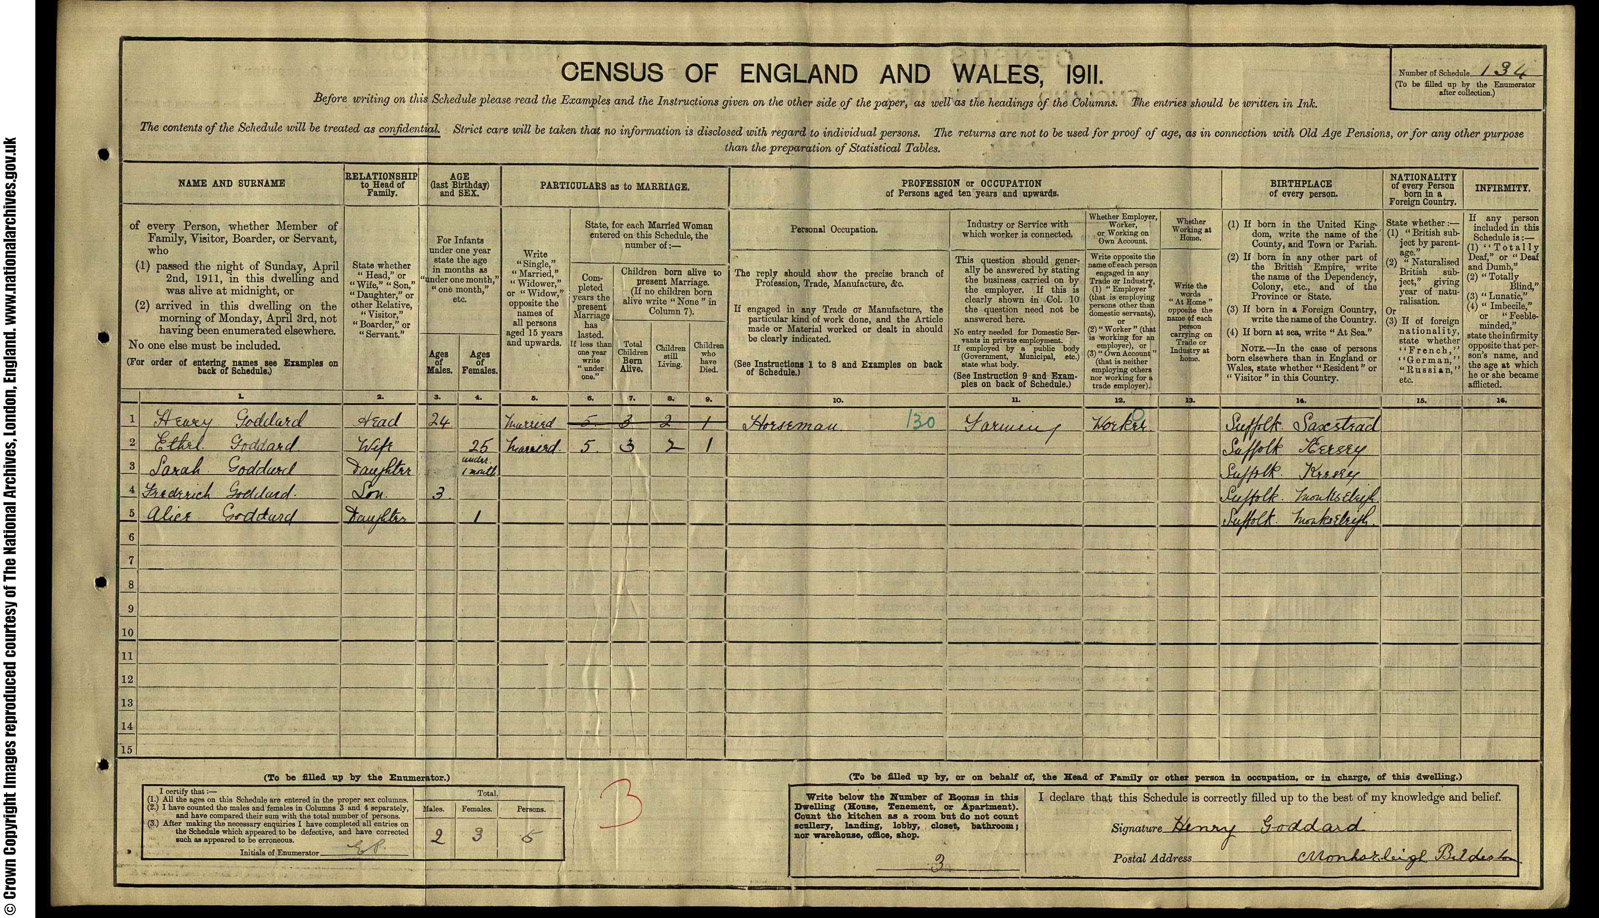 CENSUS OF ENGLAND AND WALES, 1911.
Number of Schedule 134
(To be filled up by the Enumerator
after collection.)
Before writing on this Schedule please read the Examples and the Instructions given on the other side of the paper, as well as the headings of the Columns. The entries should be written in Ink.
The contents of the Schedule will be treated as confidential. Strict care will be taken that no information is disclosed with regard to individual persons. The returns are not to be used for proof of age, as in connection with Old Age Pensions, or for any other purpose
than the preparation of Statistical Tables.
NAME AND SURNAME
of every Person, whether Member of
Family, Visitor, Boarder, or Servant,
who
(1) passed the night of Sunday, April
2nd, 1911, in this dwelling and
was alive at midnight, or
(2) arrived in this dwelling on the
morning of Monday, April 3rd, not
having been enumerated elsewhere.
No one else must be included.
(For order of entering names see Examples on
back of Schedule.)
RELATIONSHIP
to Head of
Family.
State whether
"Head," or
"Wife," "Son,"
"Daughter," or
other Relative,
"Visitor,"
"Boarder," or
"Servant."
AGE
(last Birthday)
and SEX.
For Infants
under one year
state the age
in months as
"under one month,"
"one month,"
etc.
Ages
of
Males.
Ages
of
Females.
PARTICULARS as to MARRIAGE.
Write
"Single,"
"Married,"
"Widower,"
or "Widow,"
opposite the
names of
all persons
aged 15 years
and upwards.
State, for each Married Woman
entered on this Schedule, the
number of:—
Com-
pleted
years the
present
Marriage
has
lasted.
If less than
one year
write
"under
one."
Children born alive to
present Marriage.
(If no children born
alive write "None" in
Column 7).
Total
Children
Born
Alive.
Children
still
Living.
Children
who
have
Died.
PROFESSION or OCCUPATION
of Persons aged ten years and upwards.
Personal Occupation.
The reply should show the precise branch of
Profession, Trade, Manufacture, &c.
If engaged in any Trade or Manufacture, the
particular kind of work done, and the Article
made or Material worked or dealt in should
be clearly indicated.
(See Instructions 1 to 8 and Examples on back
of Schedule.)
Industry or Service with
which worker is connected.
This question should gener-
ally be answered by stating
the business carried on by
the employer. If this is
clearly shown in Col. 10
the question need not be
answered here.
No entry needed for Domestic Ser-
vants in private employment.
If employed by a public body
(Government, Municipal, etc.)
state what body.
(See Instruction 9 and Exam-
ples on back of Schedule.)
Whether Employer,
Worker,
or Working on
Own Account.
Write opposite the
name of each person
engaged in any
Trade or Industry,
(1) "Employer"
(that is employing
persons other than
domestic servants),
or
(2) "Worker" (that
is working for an
employer), or
(3) "Own Account"
(that is neither
employing others
nor working for a
trade employer).
Whether
Working at
Home.
Write the
words
"At Home"
opposite the
name of each
person
carrying on
Trade or
Industry at
home.
BIRTHPLACE
of every person.
(1) If born in the United King-
dom, write the name of the
County, and Town or Parish.
(2) If born in any other part of
the British Empire, write
the name of the Dependency,
Colony, etc., and of the
Province or State.
(3) If born in a Foreign Country,
write the name of the Country.
(4) If born at sea, write "At Sea."
NOTE.—In the case of persons
born elsewhere than in England or
Wales, state whether "Resident" or
"Visitor" in this Country.
NATIONALITY
of every Person
born in a
Foreign Country.
State whether:—
(1) "British sub-
ject by parent-
age,"
(2) "Naturalised
British sub-
ject," giving
year of natu-
ralisation.
Or
(3) If of foreign
nationality,
state whether
"French,"
"German,"
"Russian,"
etc.
INFIRMITY.
If any person
included in this
Schedule is:—
(1) "Totally
Deaf," or "Deaf
and Dumb,"
(2) "Totally
Blind,"
(3) "Lunatic,"
(4) "Imbecile,"
or "Feeble-
minded,"
state the infirmity
opposite that per-
son's name, and
the age at which
he or she became
afflicted.
1. 2. 3. 4. 5. 6. 7. 8. 9. 10. 11. 12. 13. 14. 15. 16.
1 Henry Goddard Head 24 Married 5 3 2 1 Horseman 130 Farming Worker Suffolk Saxestrad
2 Ethel Goddard Wife 25 Married. 5. 3 2 1 Suffolk Kersey
3 Sarah Goddard Daughter under 1 month Suffolk Kersey
4 Frederich Goddard. Son. 3. Suffolk Monkseleigh
5 Alice Goddard Daughter 1 Suffolk. Monkseleigh.
6
7
8
9
10
11
12
13
14
15
(To be filled up by the Enumerator.)
I certify that:—
(1.) All the ages on this Schedule are entered in the proper sex columns.
(2.) I have counted the males and females in Columns 3 and 4 separately,
and have compared their sum with the total number of persons.
(3.) After making the necessary enquiries I have completed all entries on
the Schedule which appeared to be defective, and have corrected
such as appeared to be erroneous.
Initials of Enumerator
Total.
Males. Females. Persons.
2 3 5
3
(To be filled up by, or on behalf of, the Head of Family or other person in occupation, or in charge, of this dwelling.)
Write below the Number of Rooms in this
Dwelling (House, Tenement, or Apartment).
Count the kitchen as a room but do not count
scullery, landing, lobby, closet, bathroom;
nor warehouse, office, shop.
3
I declare that this Schedule is correctly filled up to the best of my knowledge and belief.
Signature Henry Goddard
Postal Address Monksleigh Bildeston
© Crown Copyright Images reproduced courtesy of The National Archives, London, England. www.nationalarchives.gov.uk